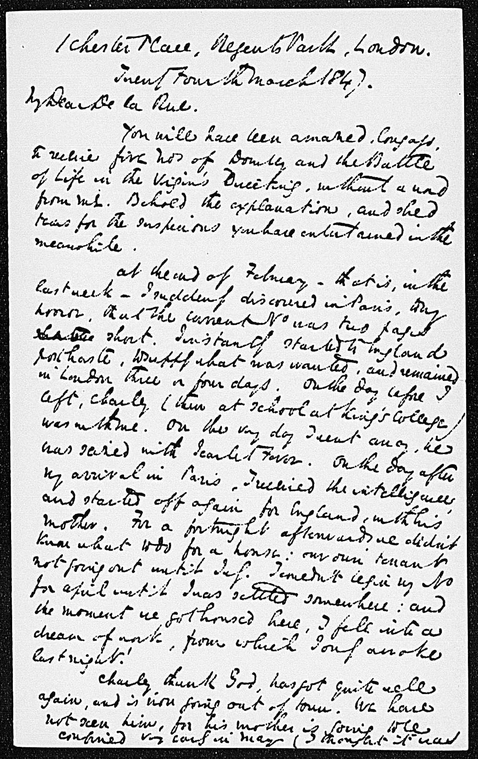 1 Chester Place, Regents Park, London.
Twenty Fourth March 1847.
My Dear De la Rue.
You will have been amazed, long ago,
to receive five Nos of Dombey and the Battle
of Life in the Virgin's Dwelling, without a word
from me. Behold the explanation, and shed
tears for the suspicions you have entertained in the
meanwhile.
At the end of February - that is, in the
last week - I suddenly discovered in Paris, to my
horror, that the current No was two pages
short. Instantly started to England
post haste, wrote what was wanted, and remained
in London three or four days. On the day before I
left, Charley (then at School at King's College)
was with me. On the very day I went away, he
was seized with Scarlet Fever. On the day after
my arrival in Paris, I received the intelligence,
and started off again for England, with his
mother. For a fortnight afterwards we didn't
know what to do for a house: our own tenant
not going out until July. I couldn't begin my No
for April until I was settled somewhere: and
the moment we got housed here, I fell into a
dream of work, from which I only awoke
last night!
Charley thank God, has got quite well
again, and is now going out of town. We have
not seen him, for his mother is going to be
confined very early in May (I thought it was